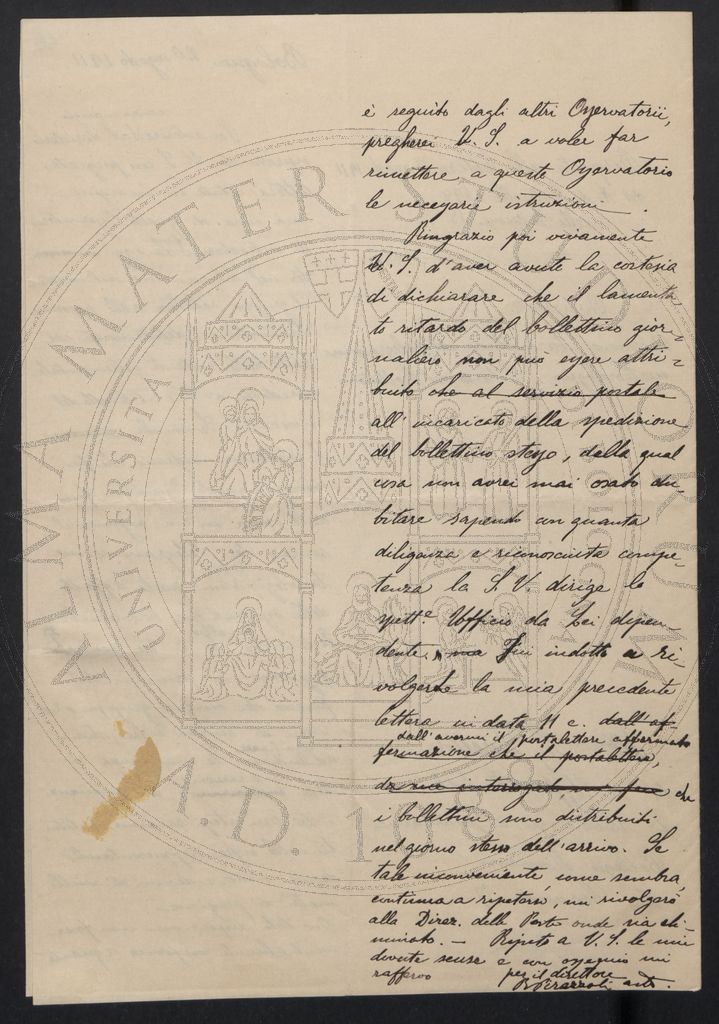 è seguito dagli altri Osservatorii,
pregherei V. S. a voler far
rimettere a questo Osservatorio
le necessarie istruzioni.
Ringrazio poi vivamente
V. S. d'aver avuto la cortesia
di dichiarare che il lamenta-
to ritardo del bollettino gior-
naliero non può essere attri-
buito che al servizio postale
all'incaricato della spedizione
del bollettino stesso, della qual
cosa non avrei mai osato du-
bitare sapendo con quanta
diligenza e riconosciuta compe-
tenza la S. V. dirige lo
spett.e Ufficio da Lei dipen-
dente, ma Fui indotto a ri-
volgerLe la mia precedente
lettera in data 11 c. dall'af-
dall'avermi il portalettere affermato
fermazione che il portalettere,
da me interrogato, mi fece che
i bollettini sono distribuiti
nel giorno stesso dell'arrivo. Se
tale inconveniente, come sembra,
continua a ripetersi, mi rivolgerò
alla Direz. delle Poste onde sia eli-
minato. — Ripeto a V. S. le mie
dovute scuse e con ossequio mi
raffermo per il direttore
ALMA MATER STUDIORUM
UNIVERSITÀ DI BOLOGNA
A.D. 1088